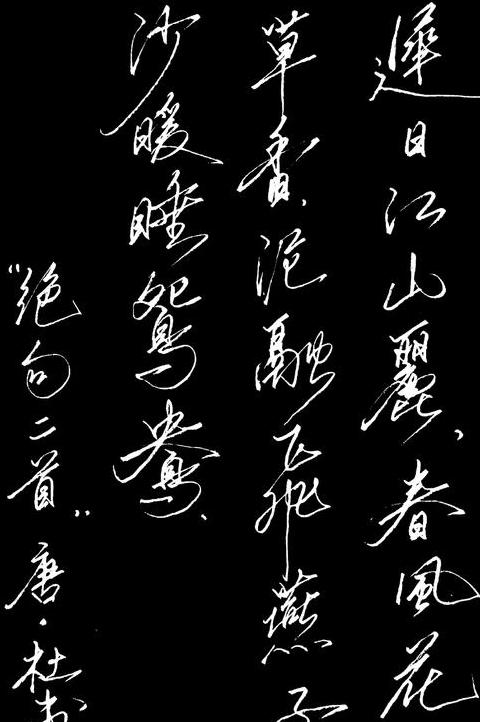 遲日江山麗、春風花
草香、泥融飛燕子
沙暖睡鴛鴦、
“絶句二首”唐·杜甫